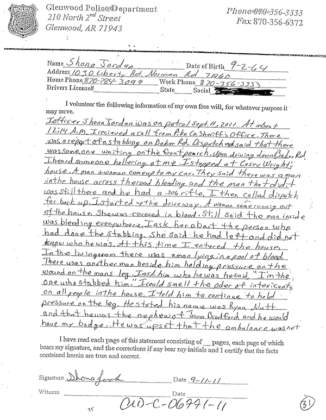 Glenwood Police Department
210 North 2nd Street
Glenwood, AR 71943
Phone 870-356-3333
Fax 870-356-6372
Name Shona Jordan Date of Birth 9-2-64
Address 1030 Liberty Rd, Norman Rd 71960
Home Phone 870-784-3099 Work Phone 870-356-3333
Drivers License# State Social
I volunteer the following information of my own free will, for whatever purpose it
may serve.
I officer Shona Jordan was on patrol Sept 11, 2011. At about
12:14 A.M. I recieved a call from Pike Co Sheriff's Office. There
was a report of a stabbing on Baker Rd. Dispatch said that there
was someone waiting on the front porch. Upon driving down Baker Rd
I heard someone hollering at me. I stopped at
house. A man & woman came up to my car. They said there was a man
in the house across the road bleeding and the man that did it
was still there and he had a knife. I then called dispatch
for back up. I started to the doorway. A woman came running out
of the house. She was covered in blood. Still said the man inside
was bleeding everywhere. I ask her about the person who
had done the stabbing. She said he had left and did not
know who he was. At this time I entered the house.
In the livingroom there was a man lying in a pool of blood.
There was another man beside him holding pressure on the
wound on the mans leg. I ask him who he was he stated "I'm the
one who stabbed him." I could smell the odor of intoxicants
on all people in the house. I told him to continue to hold
pressure on the leg. He stated his name was Ryan Nutt
and that he was the nephew of Jana Bradford and he would
have my badge. He was upset that the ambulance was not
I have read each page of this statement consisting of pages, each page of which
bears my signature, and the corrections if any bear my initials and I certify that the facts
contained herein are true and correct.
Signature Date 9-11-11
Witness Date
31